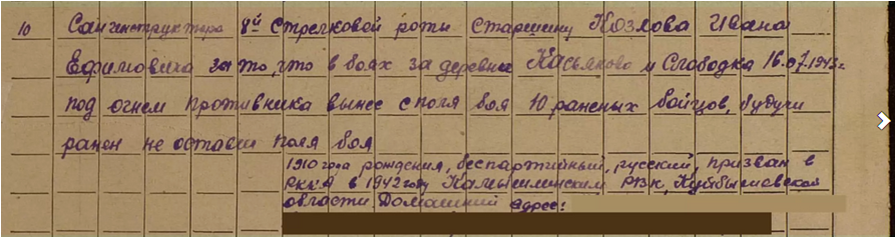 10 Санинструктора 8й стрелковой роты старшину Козлова Ивана
Ефимовича за то, что в боях за деревни Касьяново и Слободка 16.07.1943г.
под огнем противника вынес с поля боя 10 раненых бойцов, будучи
ранен не оставил поля боя
1910 года рождения, беспартийный, русский, призван в
РККА в 1942 году РВК, Куйбышевской
области Домашний адрес: